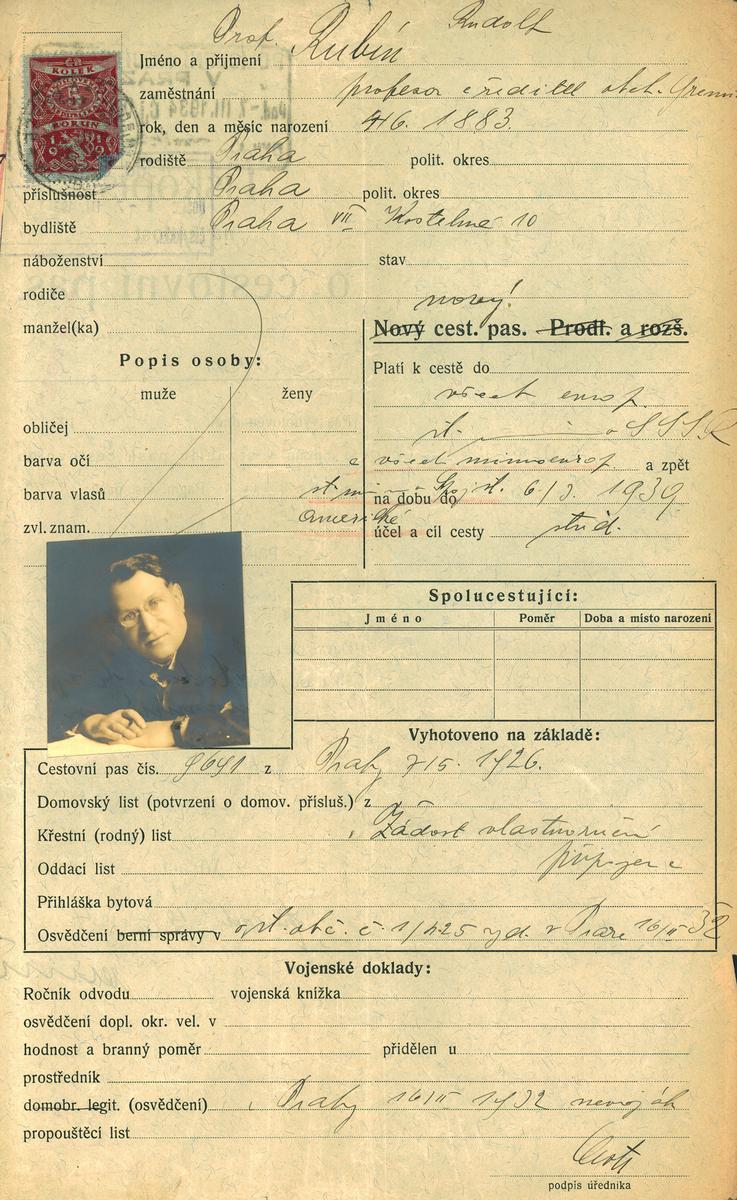 Prof. Rubín Rudolf
Jméno a příjmení
zaměstnání profesor a ředitel obch.
rok, den a měsíc narození 4/6. 1883.
rodiště Praha polit. okres
příslušnost Praha polit. okres
bydliště Praha VII Kostelní 10
náboženství stav
rodiče
manžel(ka)
KOLEK
5
KORUN
1919
nový!
Nový cest. pas. Prodl. a rozš.
Popis osoby:
muže ženy
obličej
barva očí
barva vlasů
zvl. znam.
Platí k cestě do
všech europ.
st. SSSR
a všech mimoevrop. a zpět
st. Spoj. st.
americké
na dobu do 6/3. 1939
účel a cíl cesty stud.
Spolucestující:
Jméno Poměr Doba a místo narození
Vyhotoveno na základě:
Cestovní pas čís. 9691 z Prahy 7/5. 1926.
Domovský list (potvrzení o domov. přísluš.) z
Křestní (rodný) list Žádost vlastnoruční
Oddací list připojena
Přihláška bytová
Osvědčení berní správy v obč. č. 1/425 vyd. v Praze 16/II 32
Vojenské doklady:
Ročník odvodu vojenská knížka
osvědčení dopl. okr. vel. v
hodnost a branný poměr přidělen u
prostředník
domobr. legit. (osvědčení) Prahy 16/II 1932 nevoják
propouštěcí list
podpis úředníka